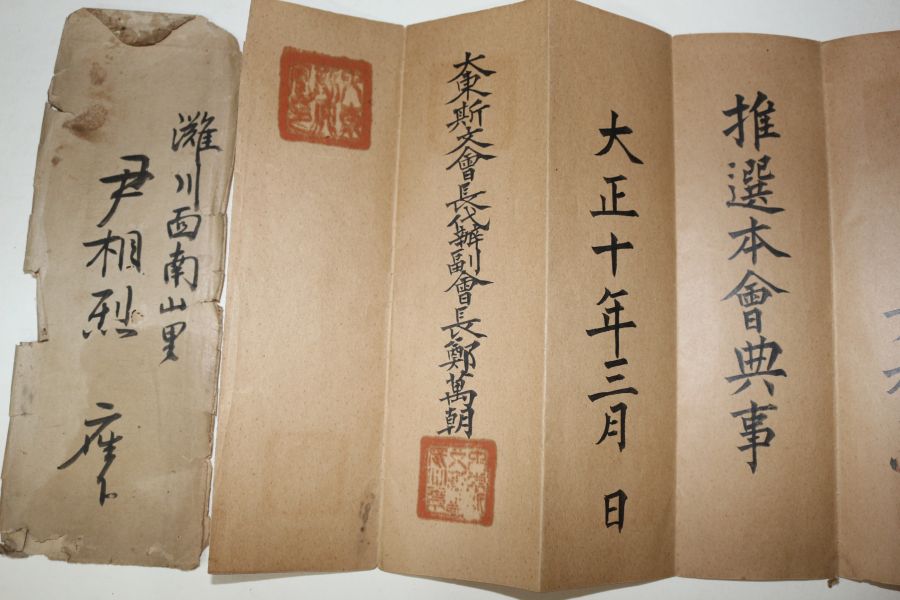 推選本會典事
大正十年三月 日
大東斯文會長代辦副會長鄭萬朝
灘川面南山里
尹相烈 座下